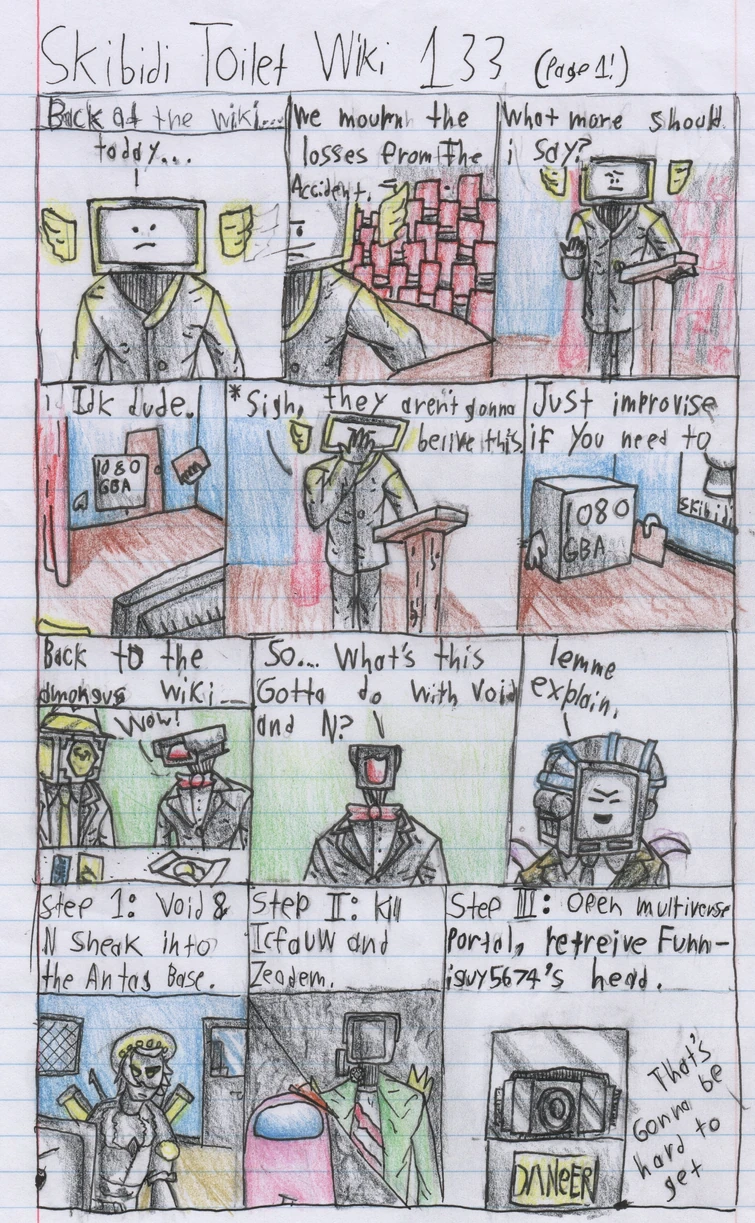 Skibidi Toilet Wiki 133 (Page 1!)
Back at the wiki...
today...
We mourn the
losses from The
Accident.
What more should
i say?
Idk dude.
1080
GBA
*Sigh, they aren't gonna
belive this.
Just improvise
if You need to
1080
GBA
Skibidi
Back to the
amongus wiki...
Wow!
So... What's this
Gotta do with Void
and N?
lemme
explain.
Step 1: Void &
N sneak into
the Antag Base.
Step II: Kill
Icfauw and
Zeadem.
Step III: Open multiverse
Portal, retreive Funn-
iguy5674's head.
DANGER
That's
Gonna be
hard to
get